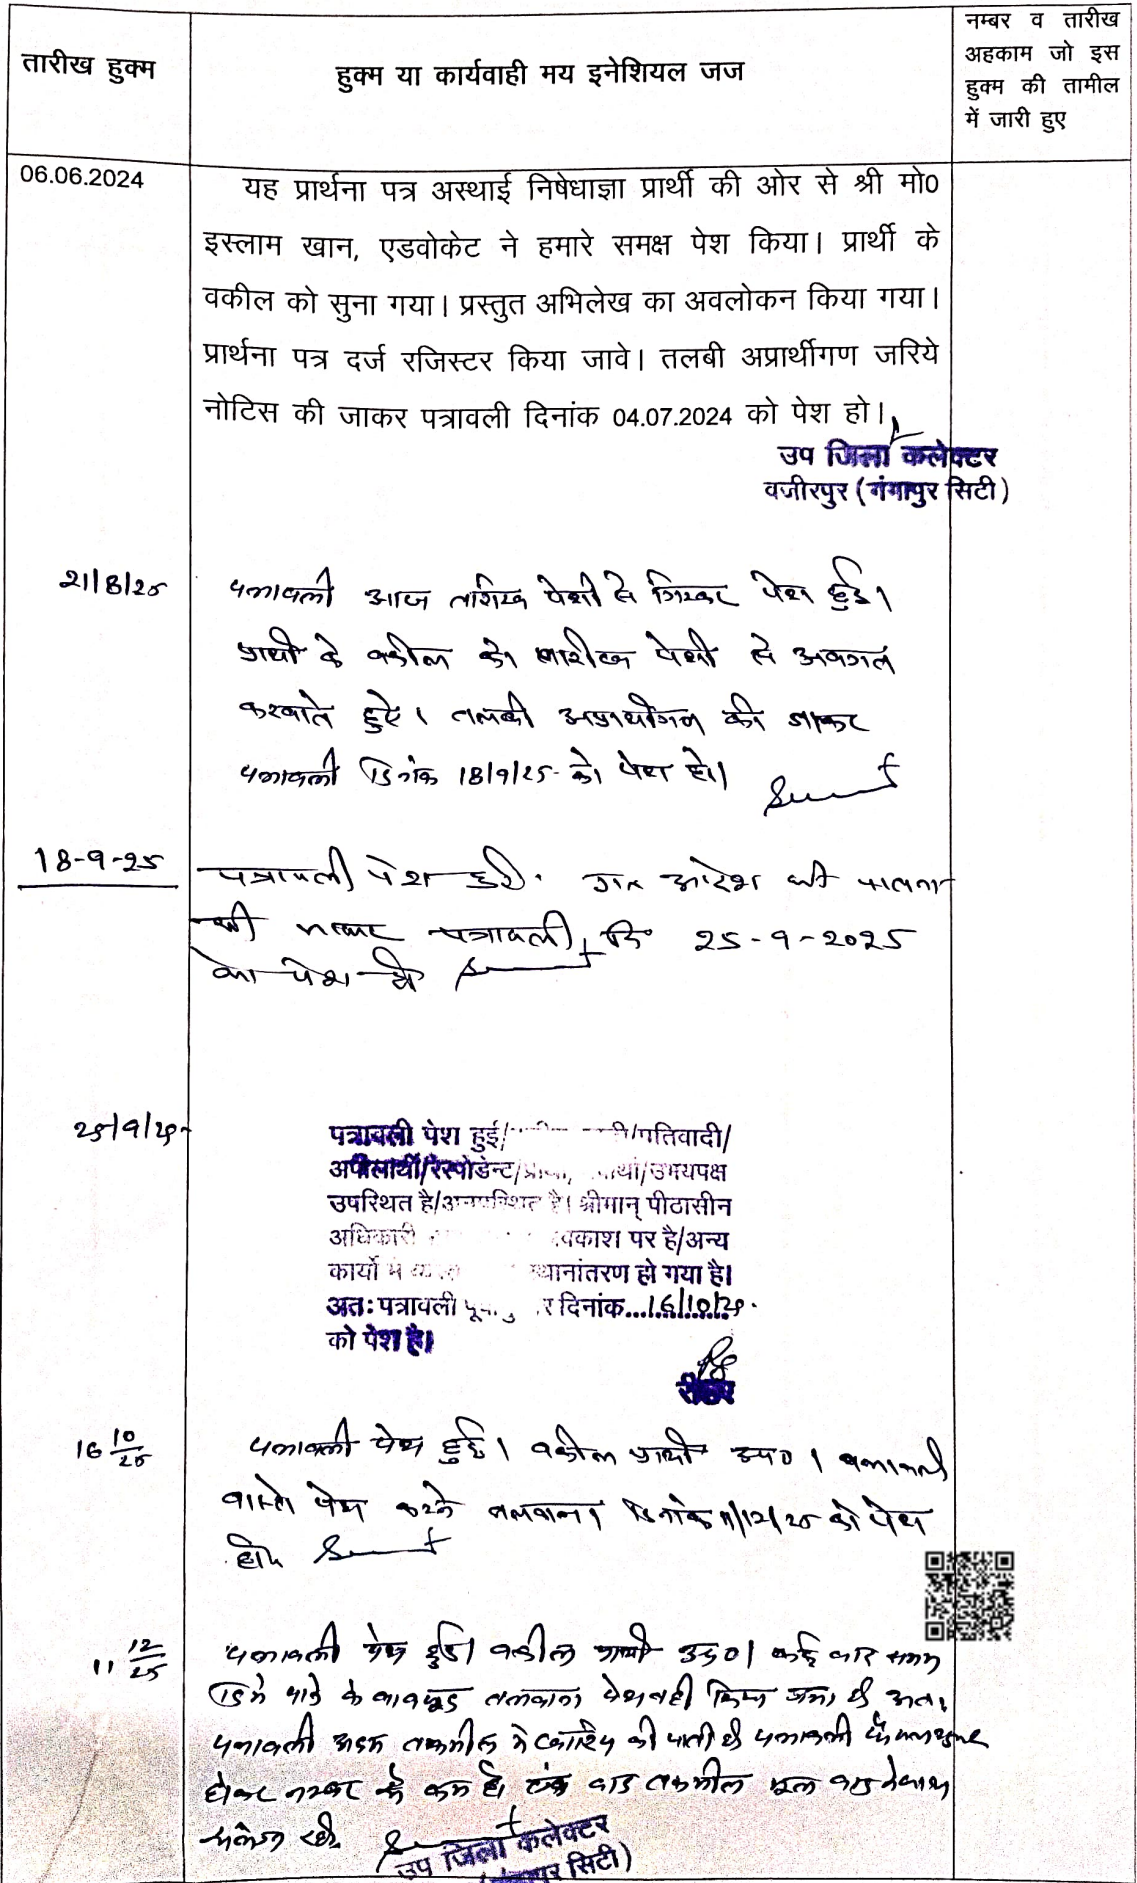 तारीख हुक्म
हुक्म या कार्यवाही मय इनेशियल जज
नम्बर व तारीख
अहकाम जो इस
हुक्म की तामील
में जारी हुए
06.06.2024
यह प्रार्थना पत्र अस्थाई निषेधाज्ञा प्रार्थी की ओर से श्री मो0
इस्लाम खान, एडवोकेट ने हमारे समक्ष पेश किया। प्रार्थी के
वकील को सुना गया। प्रस्तुत अभिलेख का अवलोकन किया गया।
प्रार्थना पत्र दर्ज रजिस्टर किया जावे। तलबी अप्रार्थीगण जरिये
नोटिस की जाकर पत्रावली दिनांक 04.07.2024 को पेश हो।
उप जिला कलेक्टर
वजीरपुर (गंगापुर सिटी)
21/8/25
पत्रावली आज तारीख पेशी से निकर पेश हुई।
प्रार्थी के वकील को तारीख पेशी से अवगत
करवाते हुऐ। तलबी अप्रार्थीगण की जाकर
पत्रावली दिनांक 18/9/25 को पेश हो।
18-9-25
पत्रावली पेश हुई। गत आदेश की पालना
की जाकर पत्रावली दि० 25-9-2025
को पेश हो
25/9/25
पत्रावली पेश हुई/ /प्रतिवादी/
अपीलार्थी/रेस्पोडेन्ट/ /उभयपक्ष
उपस्थित है/अनुपस्थित है। श्रीमान् पीठासीन
अधिकारी अवकाश पर है/अन्य
कार्यो में स्थानांतरण हो गया है।
अतः पत्रावली दिनांक...16/10/25.
को पेश है।
रीडर
16 10/25
पत्रावली पेश हुई। वकील प्रार्थी उप०। पत्रावली
वास्ते पेश करने तलवाना दिनांक 11/12/25 को पेश
हो।
11 12/25
पत्रावली पेश हुई। वकील प्रार्थी उप०। कई बार समय
दिये जाने के बावजूद तलवाना पेश नही किया गया है अतः
पत्रावली अदम तकमील मे खारिज की जाती है पत्रावली
होकर नम्बर से कम हो बाद तकमील मूल वाद के साथ
संलग्न रहे।
उप जिला कलेक्टर
सिटी)